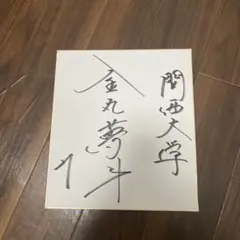 関西大学
金丸夢斗